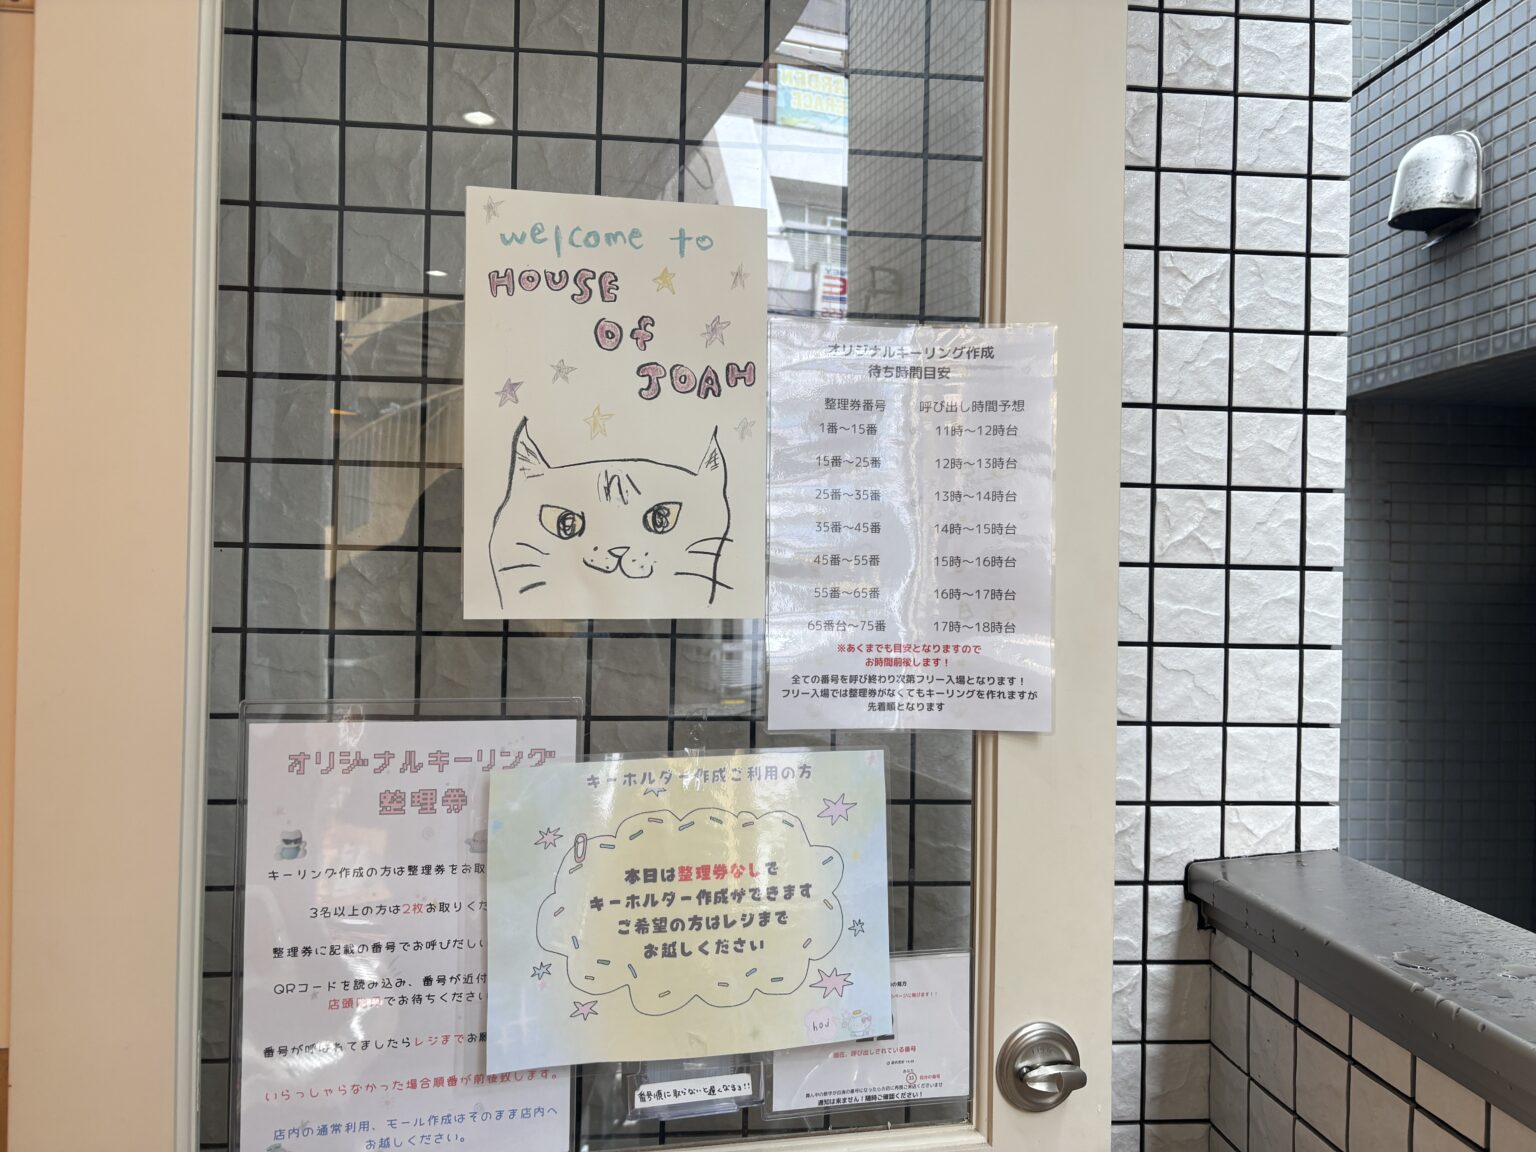 GARDEN
TERRACE
welcome to
HOUSE
Of
JOAH
オリジナルキーリング作成
待ち時間目安
整理券番号 呼び出し時間予想
1番～15番 11時～12時台
15番～25番 12時～13時台
25番～35番 13時～14時台
35番～45番 14時～15時台
45番～55番 15時～16時台
55番～65番 16時～17時台
65番台～75番 17時～18時台
※あくまでも目安となりますので
お時間前後します！
全ての番号を呼び終わり次第フリー入場となります！
フリー入場では整理券がなくてもキーリングを作れますが
先着順となります
オリジナルキーリング
整理券
キーリング作成の方は整理券をお取
3名以上の方は2枚お取りくだ
整理券に記載の番号でお呼びだし
QRコードを読み込み、番号が近付
店頭 でお待ちください
番号が呼ばれてましたらレジまでお
いらっしゃらなかった場合順番が前後致します。
店内の通常利用、モール作成はそのまま店内へ
お越しください。
キーホルダー作成ご利用の方
本日は整理券なしで
キーホルダー作成ができます
ご希望の方はレジまで
お越しください
hoj
番号順に取らないと遅くなるよ!!
の見方
ページに飛びます！！
現在、呼び出しされている番号
あなた
33 自分の番号
通知は来ません！随時ご確認ください！